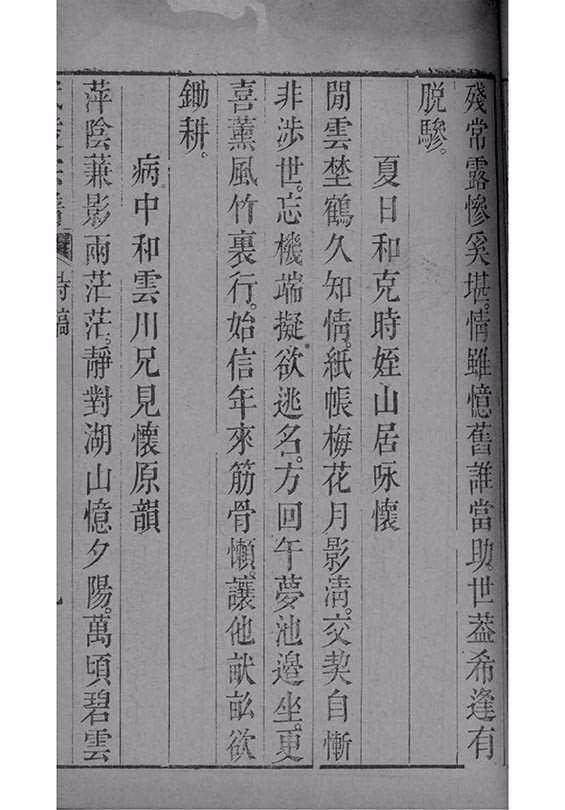 殘常露慘奚堪。情雖憶舊誰當助。世葢希逢有
脫驂。
夏日和克時姪山居咏懷
閒雲埜鶴久知情。紙帳梅花月影淸。交契自慚
非涉世。忘機端擬欲逃名。方回午夢池邉坐。更
喜薰風竹裏行。始信年來筋骨懶。讓他畎畝欲
鋤耕。
病中和雲川兄見懷原韻
萍陰蒹影兩茫茫。靜對湖山憶夕陽。萬頃碧雲
詩稿